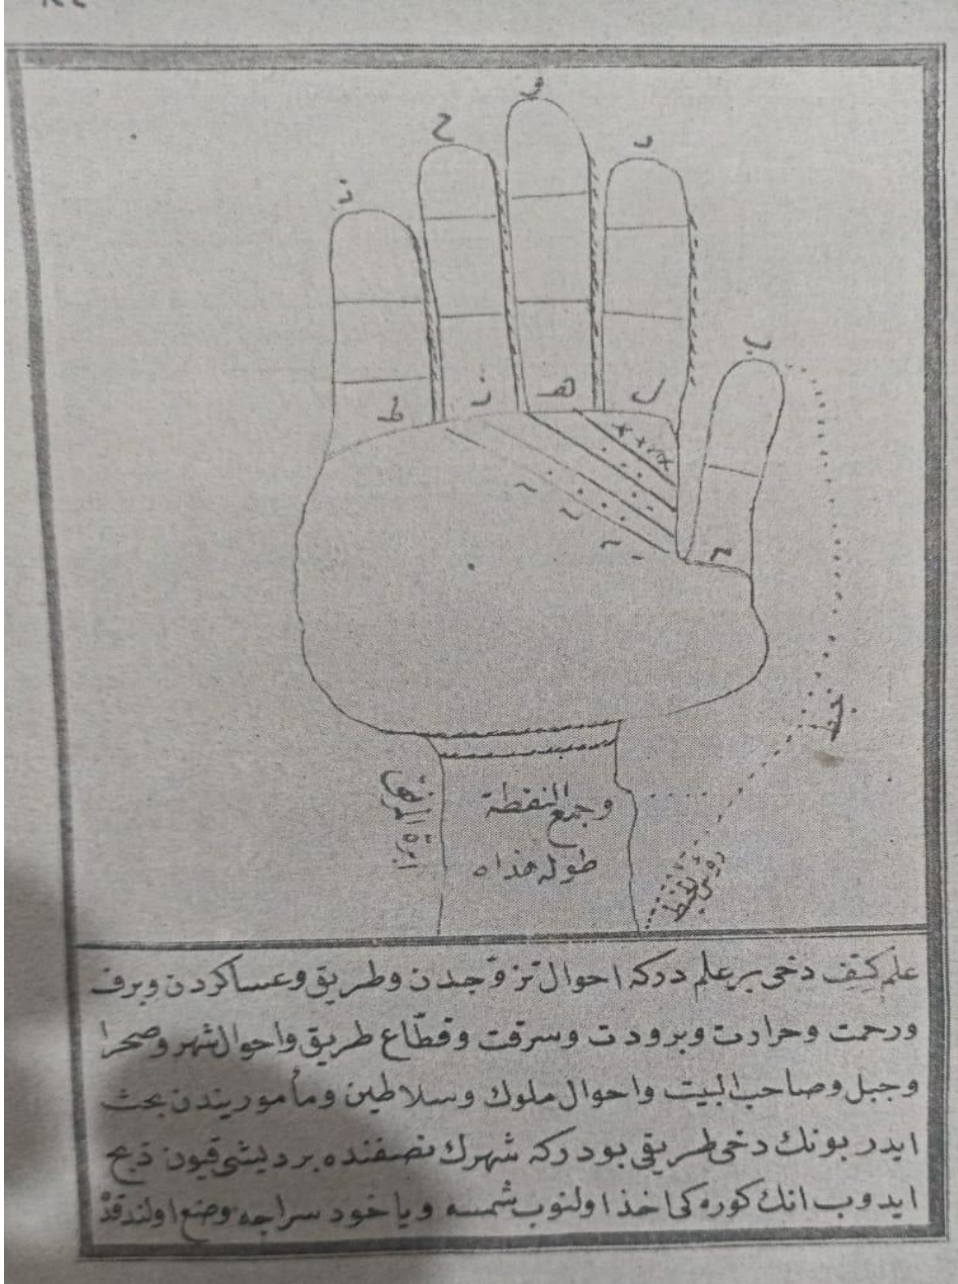 و
ح
د
ط
ز
هـ
ل
وجمع النقطة
طوله هذاه
ابرة المرفق
علم كتف دخى بر علم دركه احوال تزوّجدن وطريق وعساكردن وبرف
ورحمت وحرارت وبرودت وسرقت وقطّاع طريق واحوال شهر وصحرا
وجبل وصاحب البيت واحوال ملوك وسلاطين ومأموريندن بحث
ايدر بونك دخى طريقى بودركه شهرك نصفنده بر ديشى قيون ذبح
ايدوب انك كوره كى اخذ اولنوب شمسه وياخود سراجه وضع اولندقدْ